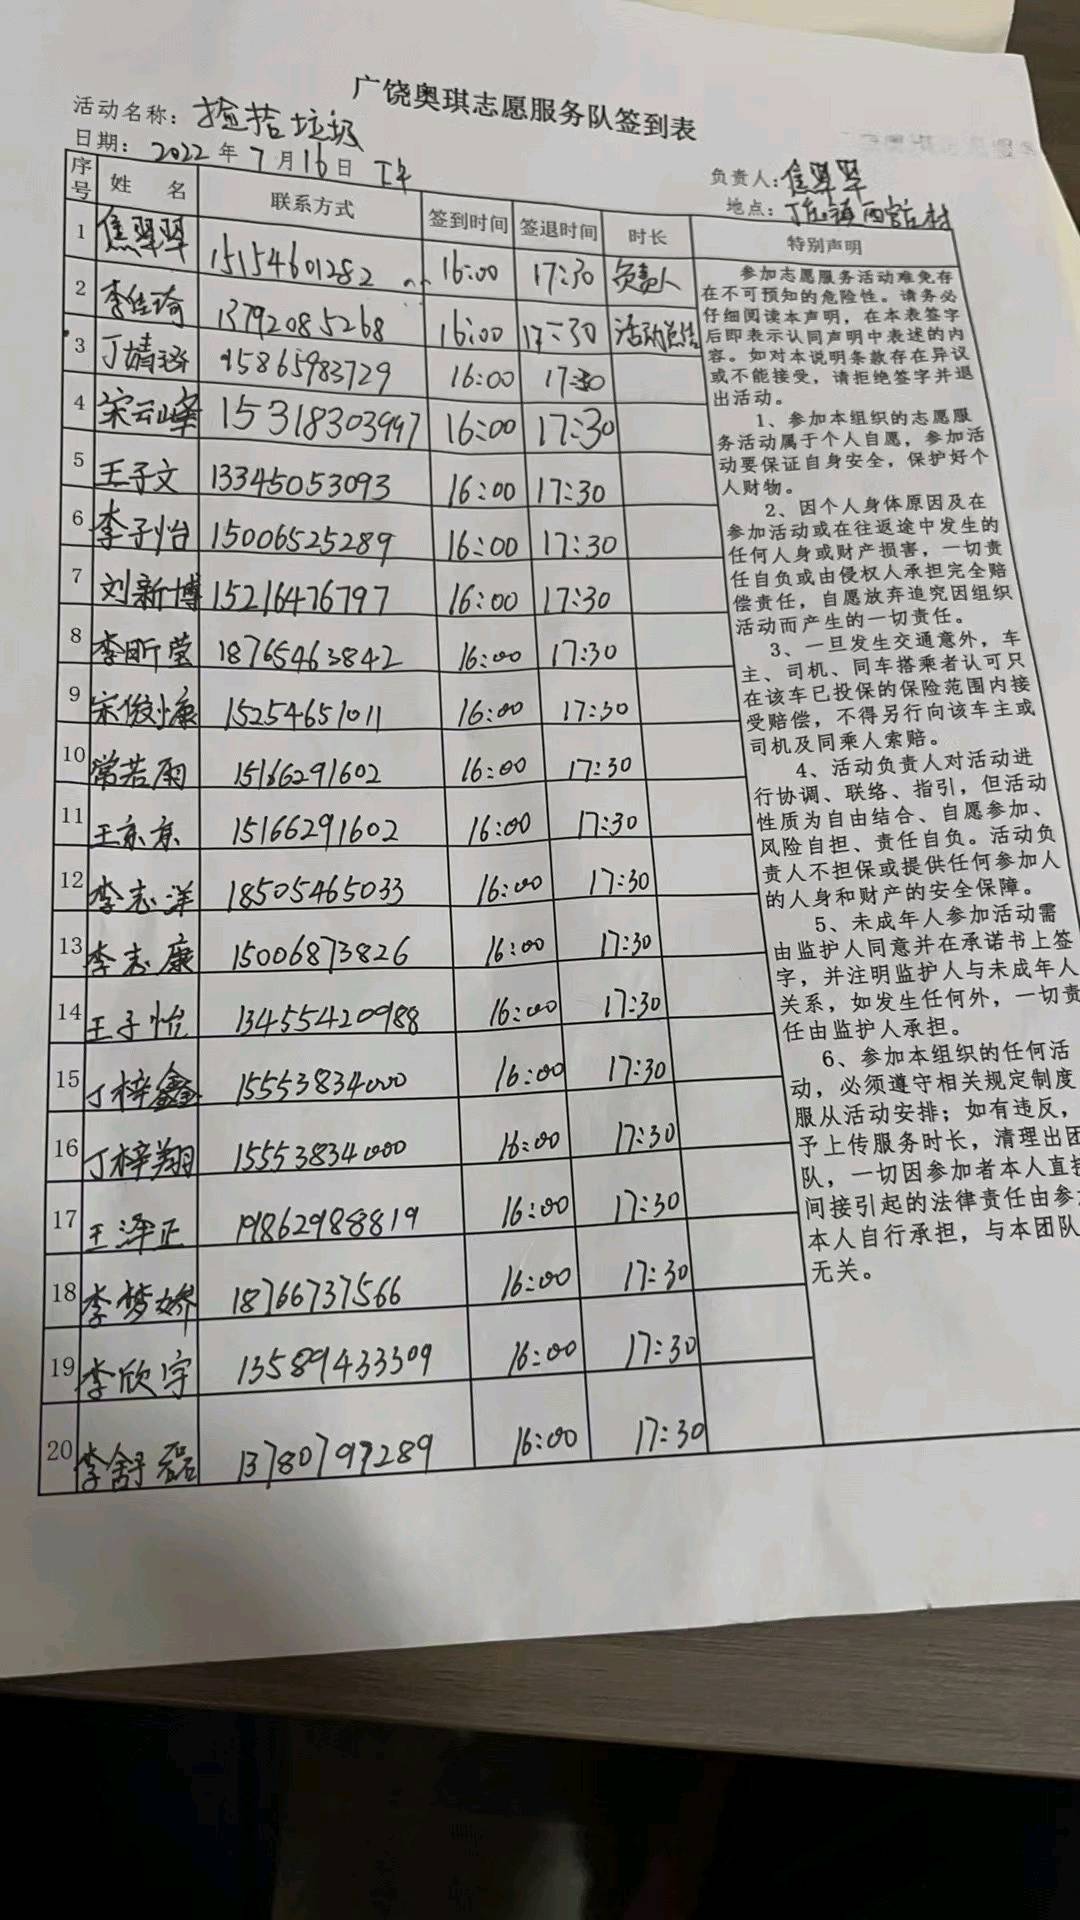 广饶奥琪志愿服务队签到表
活动名称：捡拾垃圾
日期：2022年7月16日 下午
负责人：焦翠翠
地点：丁庄镇西宫庄村
序号 姓名 联系方式 签到时间 签退时间 时长 特别声明
1 焦翠翠 15154601282 16:00 17:30 负责人
2 李佳琦 13792085268 16:00 17:30 活动总结
3 丁婧涵 15865983729 16:00 17:30
4 宋云峰 15318303997 16:00 17:30
5 王子文 13345053093 16:00 17:30
6 李子怡 15006525289 16:00 17:30
7 刘新博 15216476797 16:00 17:30
8 李昕莹 18765463842 16:00 17:30
9 宋俊慷 15254651011 16:00 17:30
10 常若雨 15166291602 16:00 17:30
11 王京京 15166291602 16:00 17:30
12 李志洋 18505465033 16:00 17:30
13 李志康 15006873826 16:00 17:30
14 王子怡 134555420988 16:00 17:30
15 丁梓鑫 15553834000 16:00 17:30
16 丁梓翔 15553834000 16:00 17:30
17 王泽正 19862988819 16:00 17:30
18 李梦娇 18766737566 16:00 17:30
19 李欣宇 13589433309 16:00 17:30
20 李舒磊 13780797289 16:00 17:30
参加志愿服务活动难免存
在不可预知的危险性。请务必
仔细阅读本声明，在本表签字
后即表示认同声明中表述的内
容。如对本说明条款存在异议
或不能接受，请拒绝签字并退
出活动。
1、参加本组织的志愿服
务活动属于个人自愿，参加活
动要保证自身安全，保护好个
人财物。
2、因个人身体原因及在
参加活动或在往返途中发生的
任何人身或财产损害，一切责
任自负或由侵权人承担完全赔
偿责任，自愿放弃追究因组织
活动而产生的一切责任。
3、一旦发生交通意外，车
主、司机、同车搭乘者认可只
在该车已投保的保险范围内接
受赔偿，不得另行向该车主或
司机及同乘人索赔。
4、活动负责人对活动进
行协调、联络、指引，但活动
性质为自由结合、自愿参加、
风险自担、责任自负。活动负
责人不担保或提供任何参加人
的人身和财产的安全保障。
5、未成年人参加活动需
由监护人同意并在承诺书上签
字，并注明监护人与未成年人
关系，如发生任何外，一切责
任由监护人承担。
6、参加本组织的任何活
动，必须遵守相关规定制度
服从活动安排；如有违反，
予上传服务时长，清理出团
队，一切因参加者本人直接
间接引起的法律责任由参
本人自行承担，与本团队
无关。